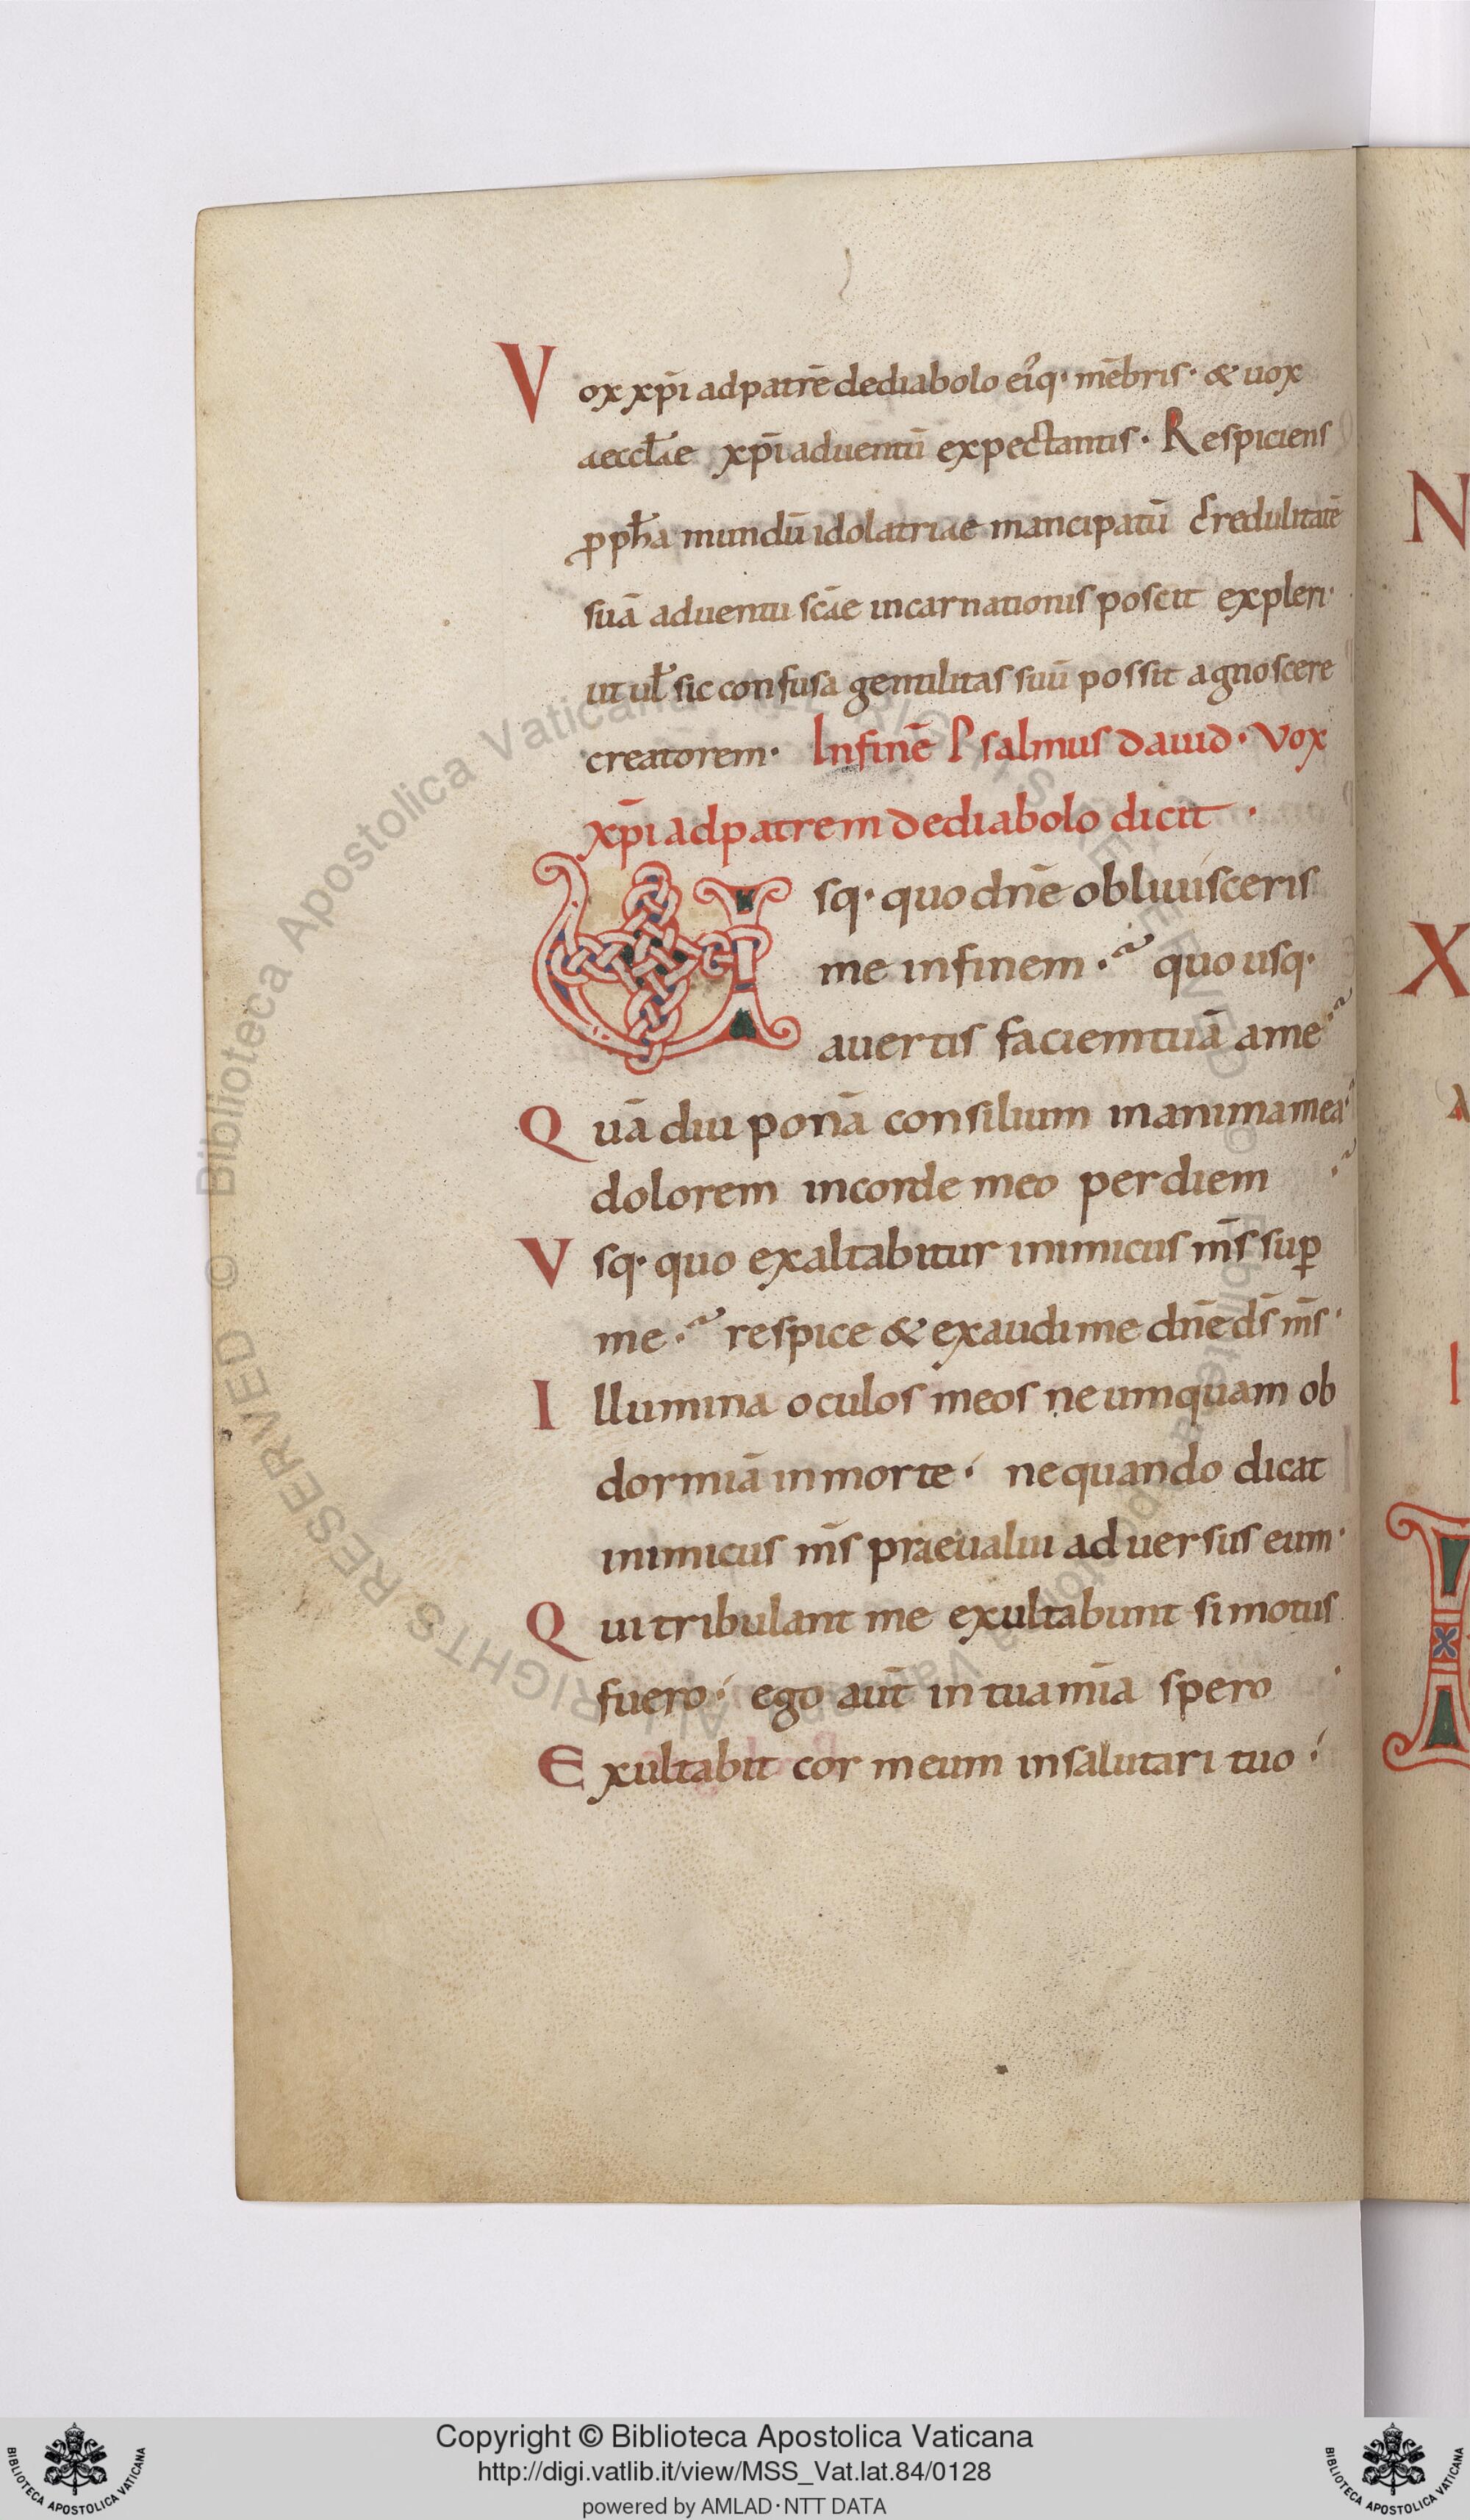 Vox xp̄i ad patrē de diabolo ei᾽q· mēbris· & uox
aeccl̄ae xp̄i aduentū expectantis· Respiciens
ꝓph̄a mundū idolatriae mancipatū credulitatē
suā aduentu sc̄ae incarnationis poscit expleri·
ut ul̄ sic confusa gentilitas suū possit agnoscere
creatorem· Infinē Psalmus dauid· Vox
xp̄i ad patrem de diabolo dicit·
Usq· quo dn̄e obliuisceris
me infinem·~ quo usq·
auertis faciem tuā a me·~
Quā diu ponā consilium in anima mea·
dolorem in corde meo per diem·~
Vsq· quo exaltabitur inimicus m̄s suꝑ
me·~ respice & exaudi me dn̄e d̄s m̄s·
Illumina oculos meos ne umquam ob
dormiā in morte· ne quando dicat
inimicus m̄s praeualui aduersus eum·
Qui tribulant me exultabunt si motus
fuero· ego aut̄ in tua mīa spero·
Exultabit cor meum in salutari tuo·
N
X
I
Copyright © Biblioteca Apostolica Vaticana
http://digi.vatlib.it/view/MSS_Vat.lat.84/0128
powered by AMLAD·NTT DATA
BIBLIOTECA APOSTOLICA VATICANA
BIBLIOTECA APOSTOLICA VATICANA
© Biblioteca Apostolica Vaticana ALL RIGHTS RESERVED © Biblioteca Apostolica Vaticana ALL RIGHTS RESERVED